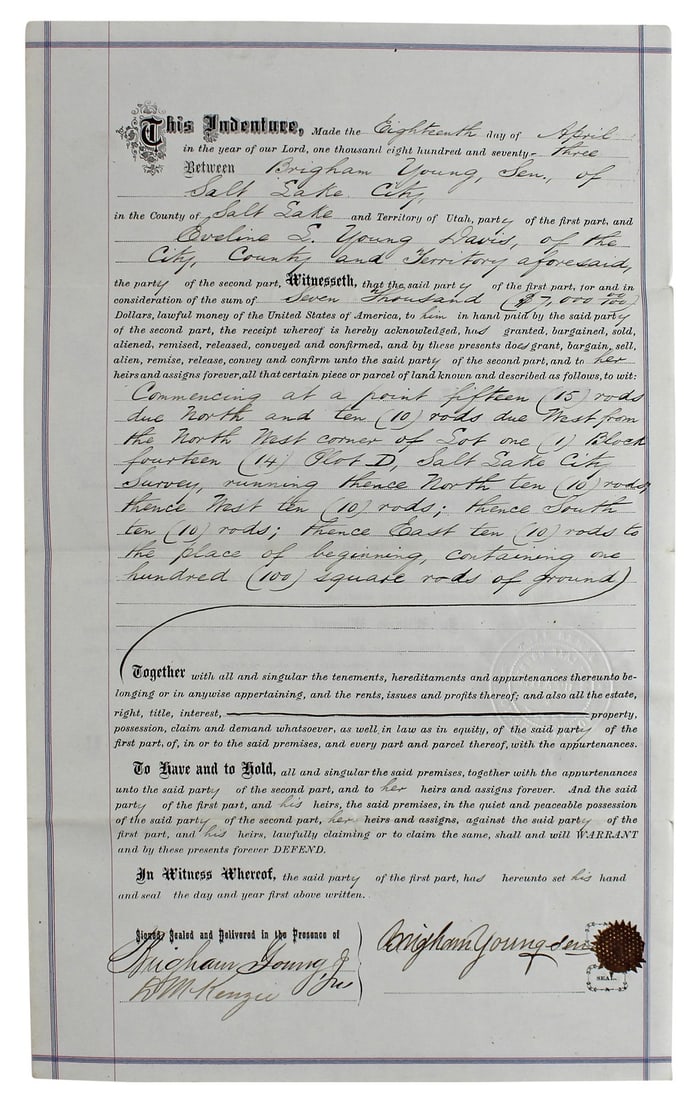 This Indenture, Made the Eighteenth day of April
in the year of our Lord, one thousand eight hundred and seventy- three
Between Brigham Young, Sen., of
Salt Lake City,
in the County of Salt Lake and Territory of Utah, party of the first part, and
Eveline L. Young Davis, of the
City, County and Territory aforesaid,
the party of the second part, Witnesseth, that the said party of the first part, for and in
consideration of the sum of Seven Thousand ($7,000 00/100)
Dollars, lawful money of the United States of America, to him in hand paid by the said party
of the second part, the receipt whereof is hereby acknowledged, has granted, bargained, sold,
aliened, remised, released, conveyed and confirmed, and by these presents does grant, bargain, sell,
alien, remise, release, convey and confirm unto the said party of the second part, and to her
heirs and assigns forever, all that certain piece or parcel of land known and described as follows, to wit:
Commencing at a point fifteen (15) rods
due North and ten (10) rods due West from
the North West corner of Lot one (1) Block
fourteen (14) Plot D, Salt Lake City
Survey, running thence North ten (10) rods;
thence West ten (10) rods; thence South
ten (10) rods; thence East ten (10) rods to
the place of beginning, containing one
hundred (100) square rods of ground)
Together with all and singular the tenements, hereditaments and appurtenances thereunto be-
longing or in anywise appertaining, and the rents, issues and profits thereof; and also all the estate,
right, title, interest, property,
possession, claim and demand whatsoever, as well in law as in equity, of the said party of the
first part, of, in or to the said premises, and every part and parcel thereof, with the appurtenances.
To Have and to Hold, all and singular the said premises, together with the appurtenances
unto the said party of the second part, and to her heirs and assigns forever. And the said
party of the first part, and his heirs, the said premises, in the quiet and peaceable possession
of the said party of the second part, her heirs and assigns, against the said party of the
first part, and his heirs, lawfully claiming or to claim the same, shall and will WARRANT
and by these presents forever DEFEND.
In Witness Whereof, the said party of the first part, has hereunto set his hand
and seal the day and year first above written.
Signed, Sealed and Delivered in the Presence of
Brigham Young Jr
D McKenzie
Brigham Young Sen
SEAL.